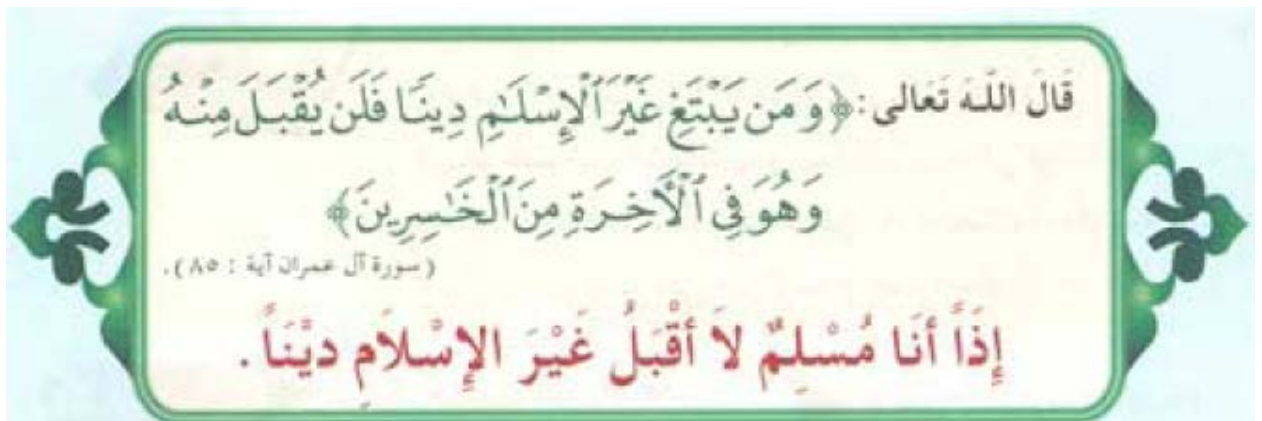 قَالَ اللَّـهُ تَعَالَى : ﴿ وَمَن يَبْتَغِ غَيْرَ ٱلْإِسْلَـٰمِ دِينًا فَلَن يُقْبَلَ مِنْهُ
وَهُوَ فِى ٱلْـَٔاخِرَةِ مِنَ ٱلْخَـٰسِرِينَ ﴾
(سورة آل عمران آية : ٨٥).
إِذَاً أَنَا مُسْلِمٌ لاَ أَقْبَلُ غَيْرَ الإِسْلاَمِ دِيْنَاً .